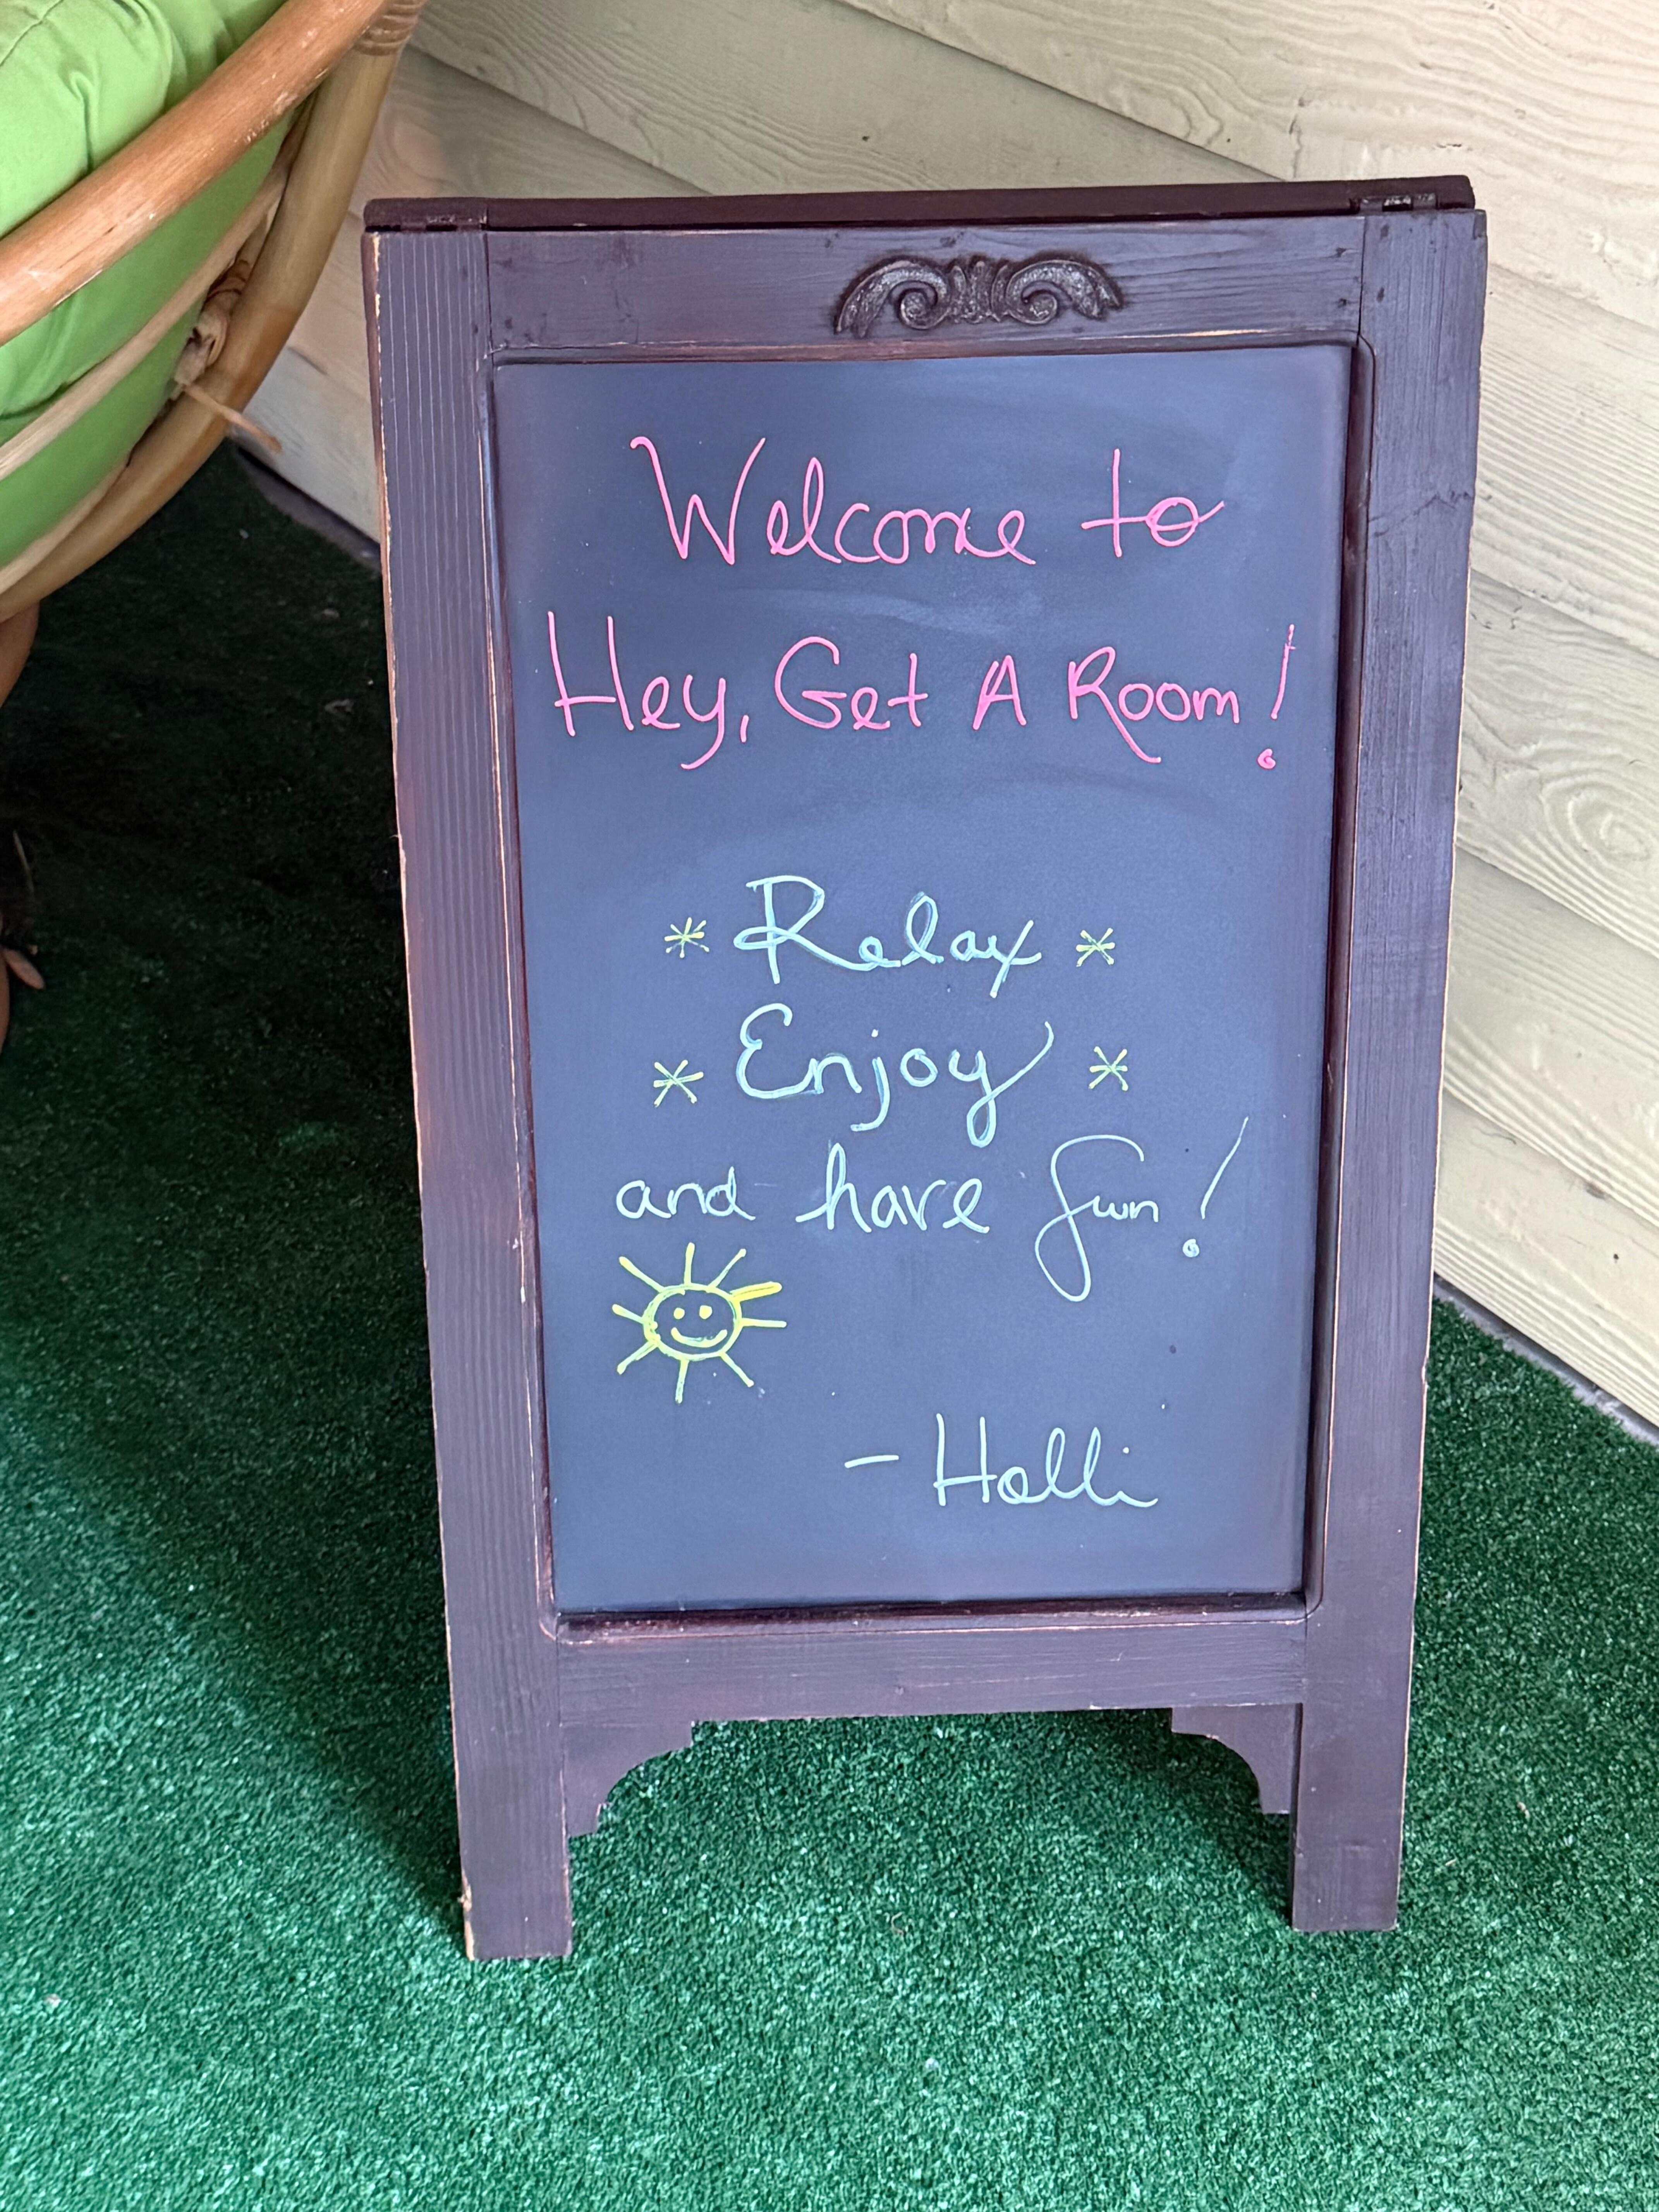 Welcome to
Hey, Get A Room!
* Relax *
* Enjoy *
and have fun!
- Holli